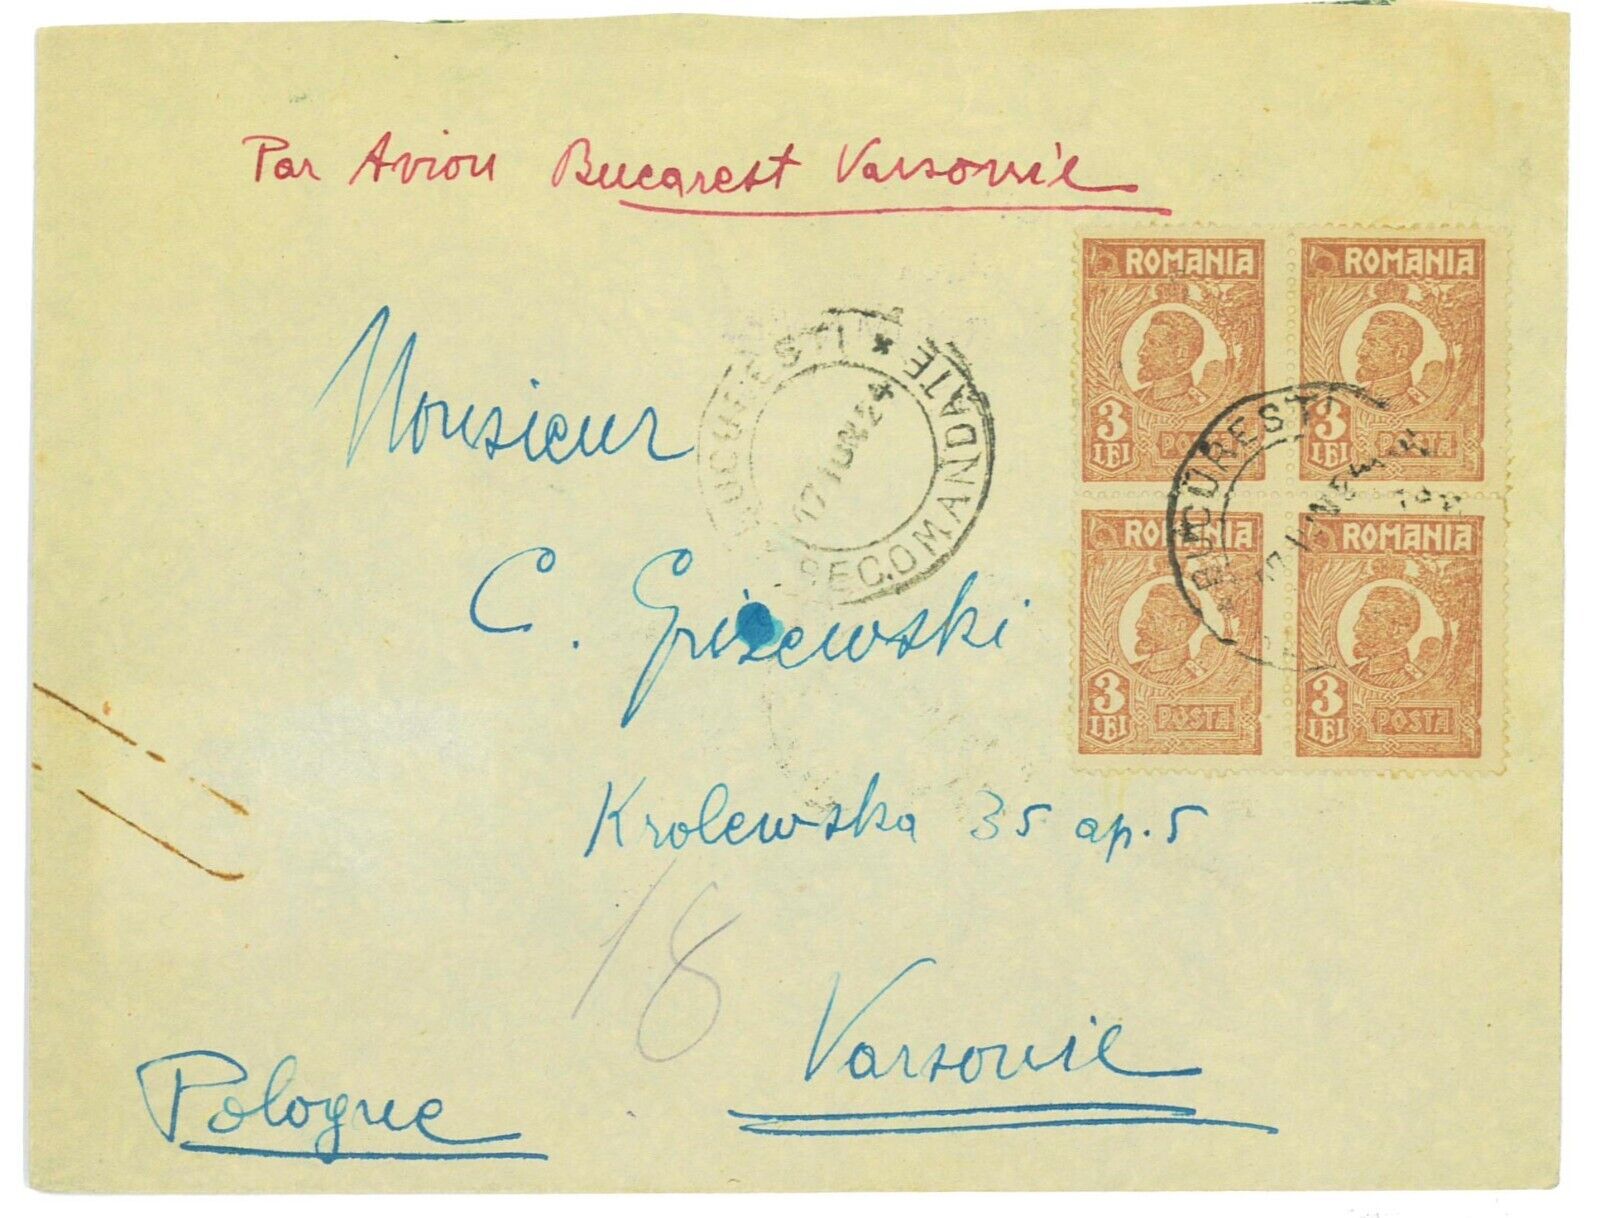 Par Avion Bucarest Varsovie
ROMANIA ROMANIA
3 LEI POSTA 3 LEI POSTA
ROMANIA ROMANIA
3 LEI POSTA 3 LEI POSTA
BUCURESTI * RECOMANDATE
17 IUN 24
BUCURESTI
17 IUN 24
Monsieur
C. Grizewski
Krolewska 35 ap. 5
18
Varsovie
Pologne